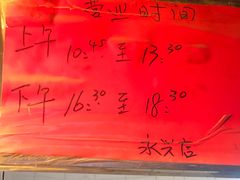 营业时间
上午 10:45 至 13:30
下午 16:30 至 18:30
永兴信